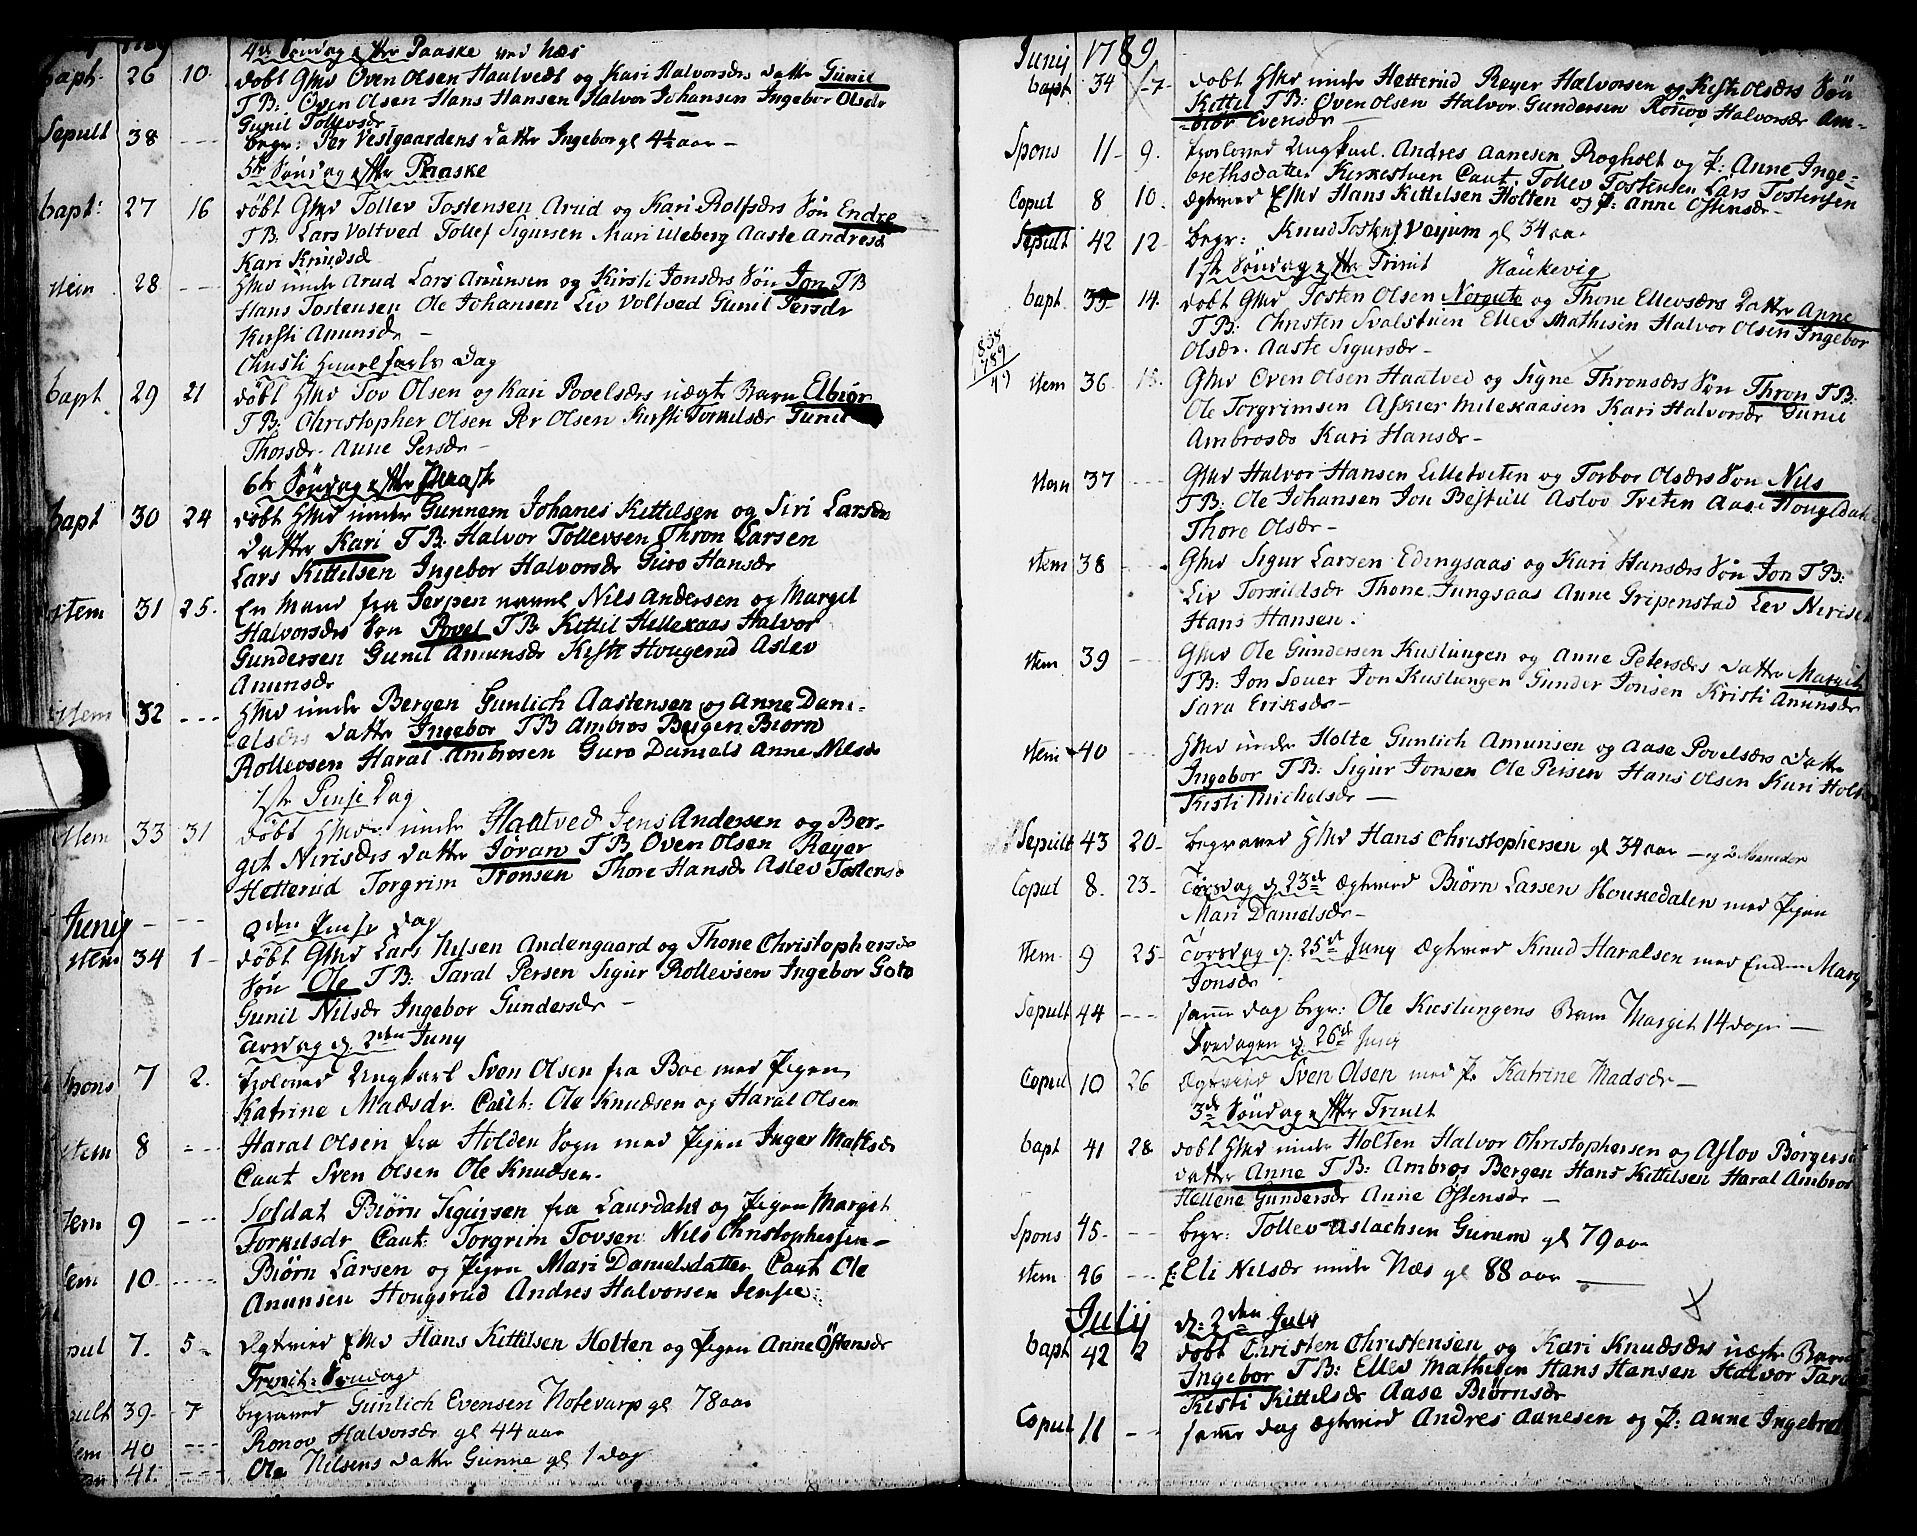 4de Søndag efter Paaske ved Næs
bapt. 26 10. døbt Ghv Oven Olsen Haatvedt og Kari Halvorsdr datter Gunil
TB: Oven Olsen Hans Hansen Halvor Johansen Ingebor Olsdr
Gunil Tollevsdr
Sepult 38 --- begr: Per Vestgaardens datter Ingebor gl 4½ aar —
5te Søndag efter Paaske
bapt: 27 16 døbt Ghv Tollev Tostensen Arud og Kari Rolfsdrs Søn Endre
TB: Lars Voltved Tollef Sigursen Mari Uleberg Aaste Andresd
Kari Knudsd
item 28 --- Ghv under Arud Lars Anunsen og Kirsti Jonsdrs Søn Jon TB
Hans Tostensen Ole Johansen Liv Voltvad Gunil Persdr
Kirsti Anunsdr —
Christi Himmelfarts Dag
bapt 29 21 døbt Ghv Tov Olsen og Kari Povelsdrs uægte Barn Elbiør
TB: Christopher Olsen Per Olsen Kirsti Torkilsdr Gunil
Thorsdr Anne Persdr —
6te Søndag efter Paask
bapt 30 24 døbt Ghv under Gunnem Johanes Kittilsen og Siri Larsdrs
datter Kari TB. Halvor Tollevsen Thron Larsen
Lars Kittilsen Ingebor Halvorsdr Guro Hansdr
item 31 25. En Mand fra Jerpen navnl Nils Andersen og Margit
Halvorsdrs Søn Povel TB Kittil Hellekaas Halvor
Gundersen Gunil Amunsdr Kisti Hougerud Aslev
Anunsdr
item 32 --- Ghv under Bergen Gunlich Aastensen og Anne Dani-
elsdrs datter Ingebor TB Ambros Bergen Biørn
Rollevsen Haral Ambrosen Guro Daniels Anne Nilsdr
1ste Pinse Dag
item 33 31 døbt Ghv under Haatved Jens Andersen og Ber-
get Nirisdrs datter Jøran TB Oven Olsen Reyer
Hetterud Torgrim Tronsen Thore Hansdr Aslev Tostensd
Junij — ---
2den Pinse dag
item 34 1 — døbt Ghv Lars Nilsen Andengaard og Thone Christophersdr
Søn Ole TB: Taral Persen Sigur Rollevsen Ingebor Goto
Gunil Nilsdr Ingebor Gundersdr —
Tirsdag d. 2den Juny
Spons 7 2. Troloved Ungkarl Sven Olsen fra Boe med Pigen
Katrine Madsdr. Caut: Ole Knudsen og Haral Olsen
item 8 --- Haral Olsen fra Holden Sogn med Pigen Inger Matsdr
Caut Sven Olsen Ole Knudsen.
item 9 --- Soldat Biørn Sigursen fra Laurdahl og Pigen Margit
Torkilsdr Caut: Torgrim Tovsen Nils Christophersen —
item 10. ---- Biørn Larsen og Pigen Mari Danielsdatter Caut Ole
Anunsen Hougsrud Andres Halvorsen
Copul 7. 5 — Ægtevied Ekv Hans Kittilsen Holten og Pigen Anne Østensdr
Trinit: Søndag
Sepult 39 — 7 begraved Gunlich Evensen Notevarp gl 78 aar
item 40 --- Ronov Halvorsdr gl 44 aar
item 41. --- Ole Nilsens datter Gunne gl 1 dag
Junij 1789
bapt. 34 7 — døbt Ghv under Hetterud Reyer Halvorsen og Kisti Olsdrs Søn
Kittil TB: Oven Olsen Halvor Gundersen Ronov Halvorsdr Am-
Evensdr —
Spons 11 — 9. Trolovved Ungkarl. Andres Aanesen Rogholt og P: Anne Inge-
brethsdatter Kirkestuen Caut. Tollev Tostensen Lars Tostensen
Copul 8 10. Ægtevied Ekv Hans Kittilsen Holten og P: Anne Østensdr —
Sepult 42 12 — begr: Knud Tostens Vejum gl 34 aar
1ste Søndag efter Trinit Haukevig
bapt 35 14. døbt Ghv Tosten Olsen Norgute og Thone Ellevsdrs Datter Anne
TB: Christen Svalstuen Ellev Mathisen Halvor Olsen Ingebor
Olsdr. Aaste Sigursdr —
838
1789
49
item 36 Ghv Oven Olsen Haatved og Signe Thronsdrs Søn Thron TB:
Ole Torgrimsen Askier Milekaasen Kari Halvorsdr Gunil
Ambrosdr Kari Hansdr —
item 37 --- Ghv Halvor Hansen Lilletveten og Torbor Olsdrs Søn Nils
TB: Ole Johansen Jon Bestull Aslov Tveten Aase Hougldal
Thore Olsdr —
item 38 --- Ghv Sigur Larsen Edingsaas og Kari Hansdrs Søn Jon TB:
Liv Torkildsdr Thone Jungsaas Anne Gripenstad Lev Nirisen
Hans Hansen.
item 39 --- Ghv Ole Gundersen Kuslungen og Anne Petersdrs datter Margit
TB: Jon Sauer Jon Kuslungen Gunder Jonsen Kristi Anunsdr
Sara Eriksdr —
item 40 --- Ghv under Holte Gunlich Amunsen og Aase Povelsdrs datter
Ingebor TB: Sigur Jonsen Ole Persen Hans Olsen Kari Holte
Kisti Michelsdr —
Sepult 43 20 — begraved Ghv Hans Christophersen gl 34 aar — og 2 Maaneder
Copul 8. 23 — Tirsdag d 23de Ægtevied Biørn Larsen Houkedalen med Pigen
Mari Danielsdr —
item 9 25 — Torsdag d. 25de Juny Ægtevied Knud Haralsen med Enken Marg
Jonsdr
Sepult 44 --- samme dag begr: Ole Kuslungens Barn Margit 14 dage —
Fredagen d 26de Juny
Copul 10 26 Ægtevied Sven Olsen med P. Katrine Madsdr —
3de Søndag efter Trinit
bapt 41 28 døbt Ghv under Holten Halvor Christophersen og Aslov Børgersd
datter Anne TB: Ambros Bergen Hans Kittilsen Haral Ambros
Hellene Gundersdr Anne Østensdr —
Spons 45 — --- begr: Tollev Aslachsen Gunem gl 79 aar
item 46 --- E: Eli Nilsdr under Næs gl 88 aar —
Julij d: 2den July
bapt 42 2 døbt Christen Christensen og Kari Knudsdrs uægte Barn
Ingebor TB: Ellev Mathisen Hans Hansen Halvor Tarals
Kisti Kittilsdr Aase Biørnsdr
Copul 11 — -- samme dag Ægtevied Andres Aanesen og P: Anne Ingebret